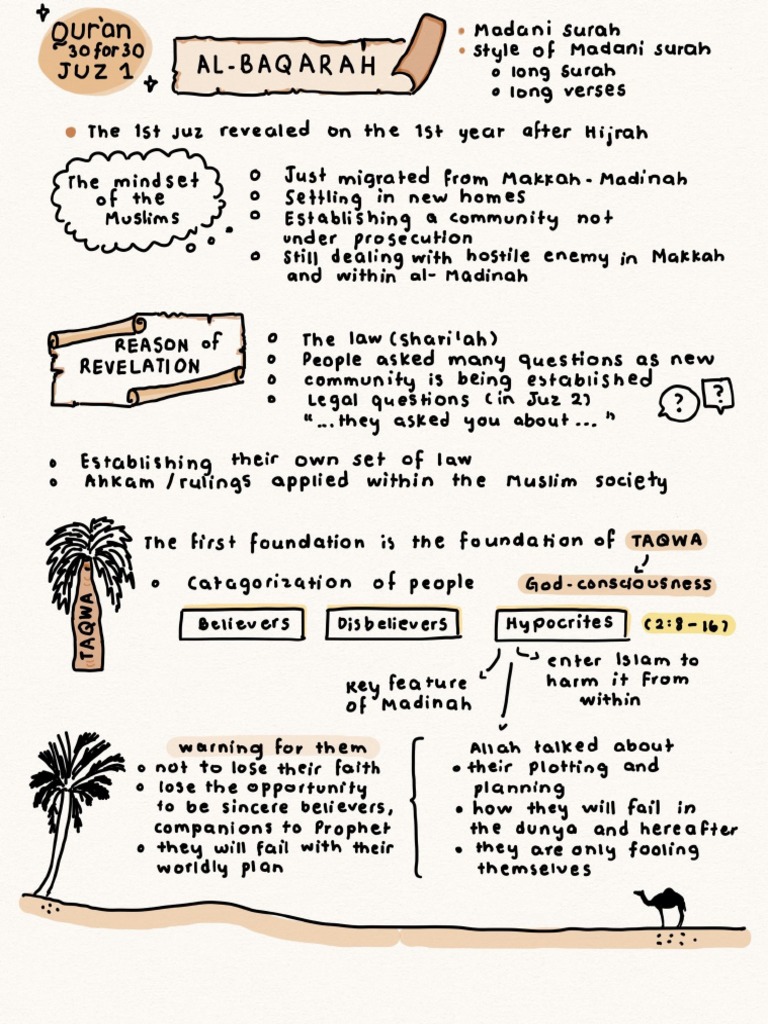 Qur'an
~30 for 30
JUZ 1
AL-BAQARAH
• Madani surah
• style of Madani surah
○ long surah
○ long verses
• The 1st Juz revealed on the 1st year after Hijrah
The mindset
of the
Muslims
○ Just migrated from Makkah-Madinah
○ Settling in new homes
○ Establishing a community not
under prosecution
○ Still dealing with hostile enemy in Makkah
and within al-Madinah
REASON of
REVELATION
○ The law (shari'ah)
○ People asked many questions as new
○ community is being established
○ Legal questions (in Juz 2)
"...they asked you about..."
? ?
○ Establishing their own set of law
○ Ahkam/rulings applied within the Muslim society
TAQWA
The first foundation is the foundation of TAQWA
○ Catagorization of people
God-consciousness
Believers
Disbelievers
Hypocrites
(2:8-16)
Key feature
of Madinah
enter Islam to
harm it from
within
warning for them
• not to lose their faith
• lose the opportunity
to be sincere believers,
companions to Prophet
• they will fail with their
worldly plan
Allah talked about
• their plotting and
planning
• how they will fail in
the dunya and hereafter
• they are only fooling
themselves